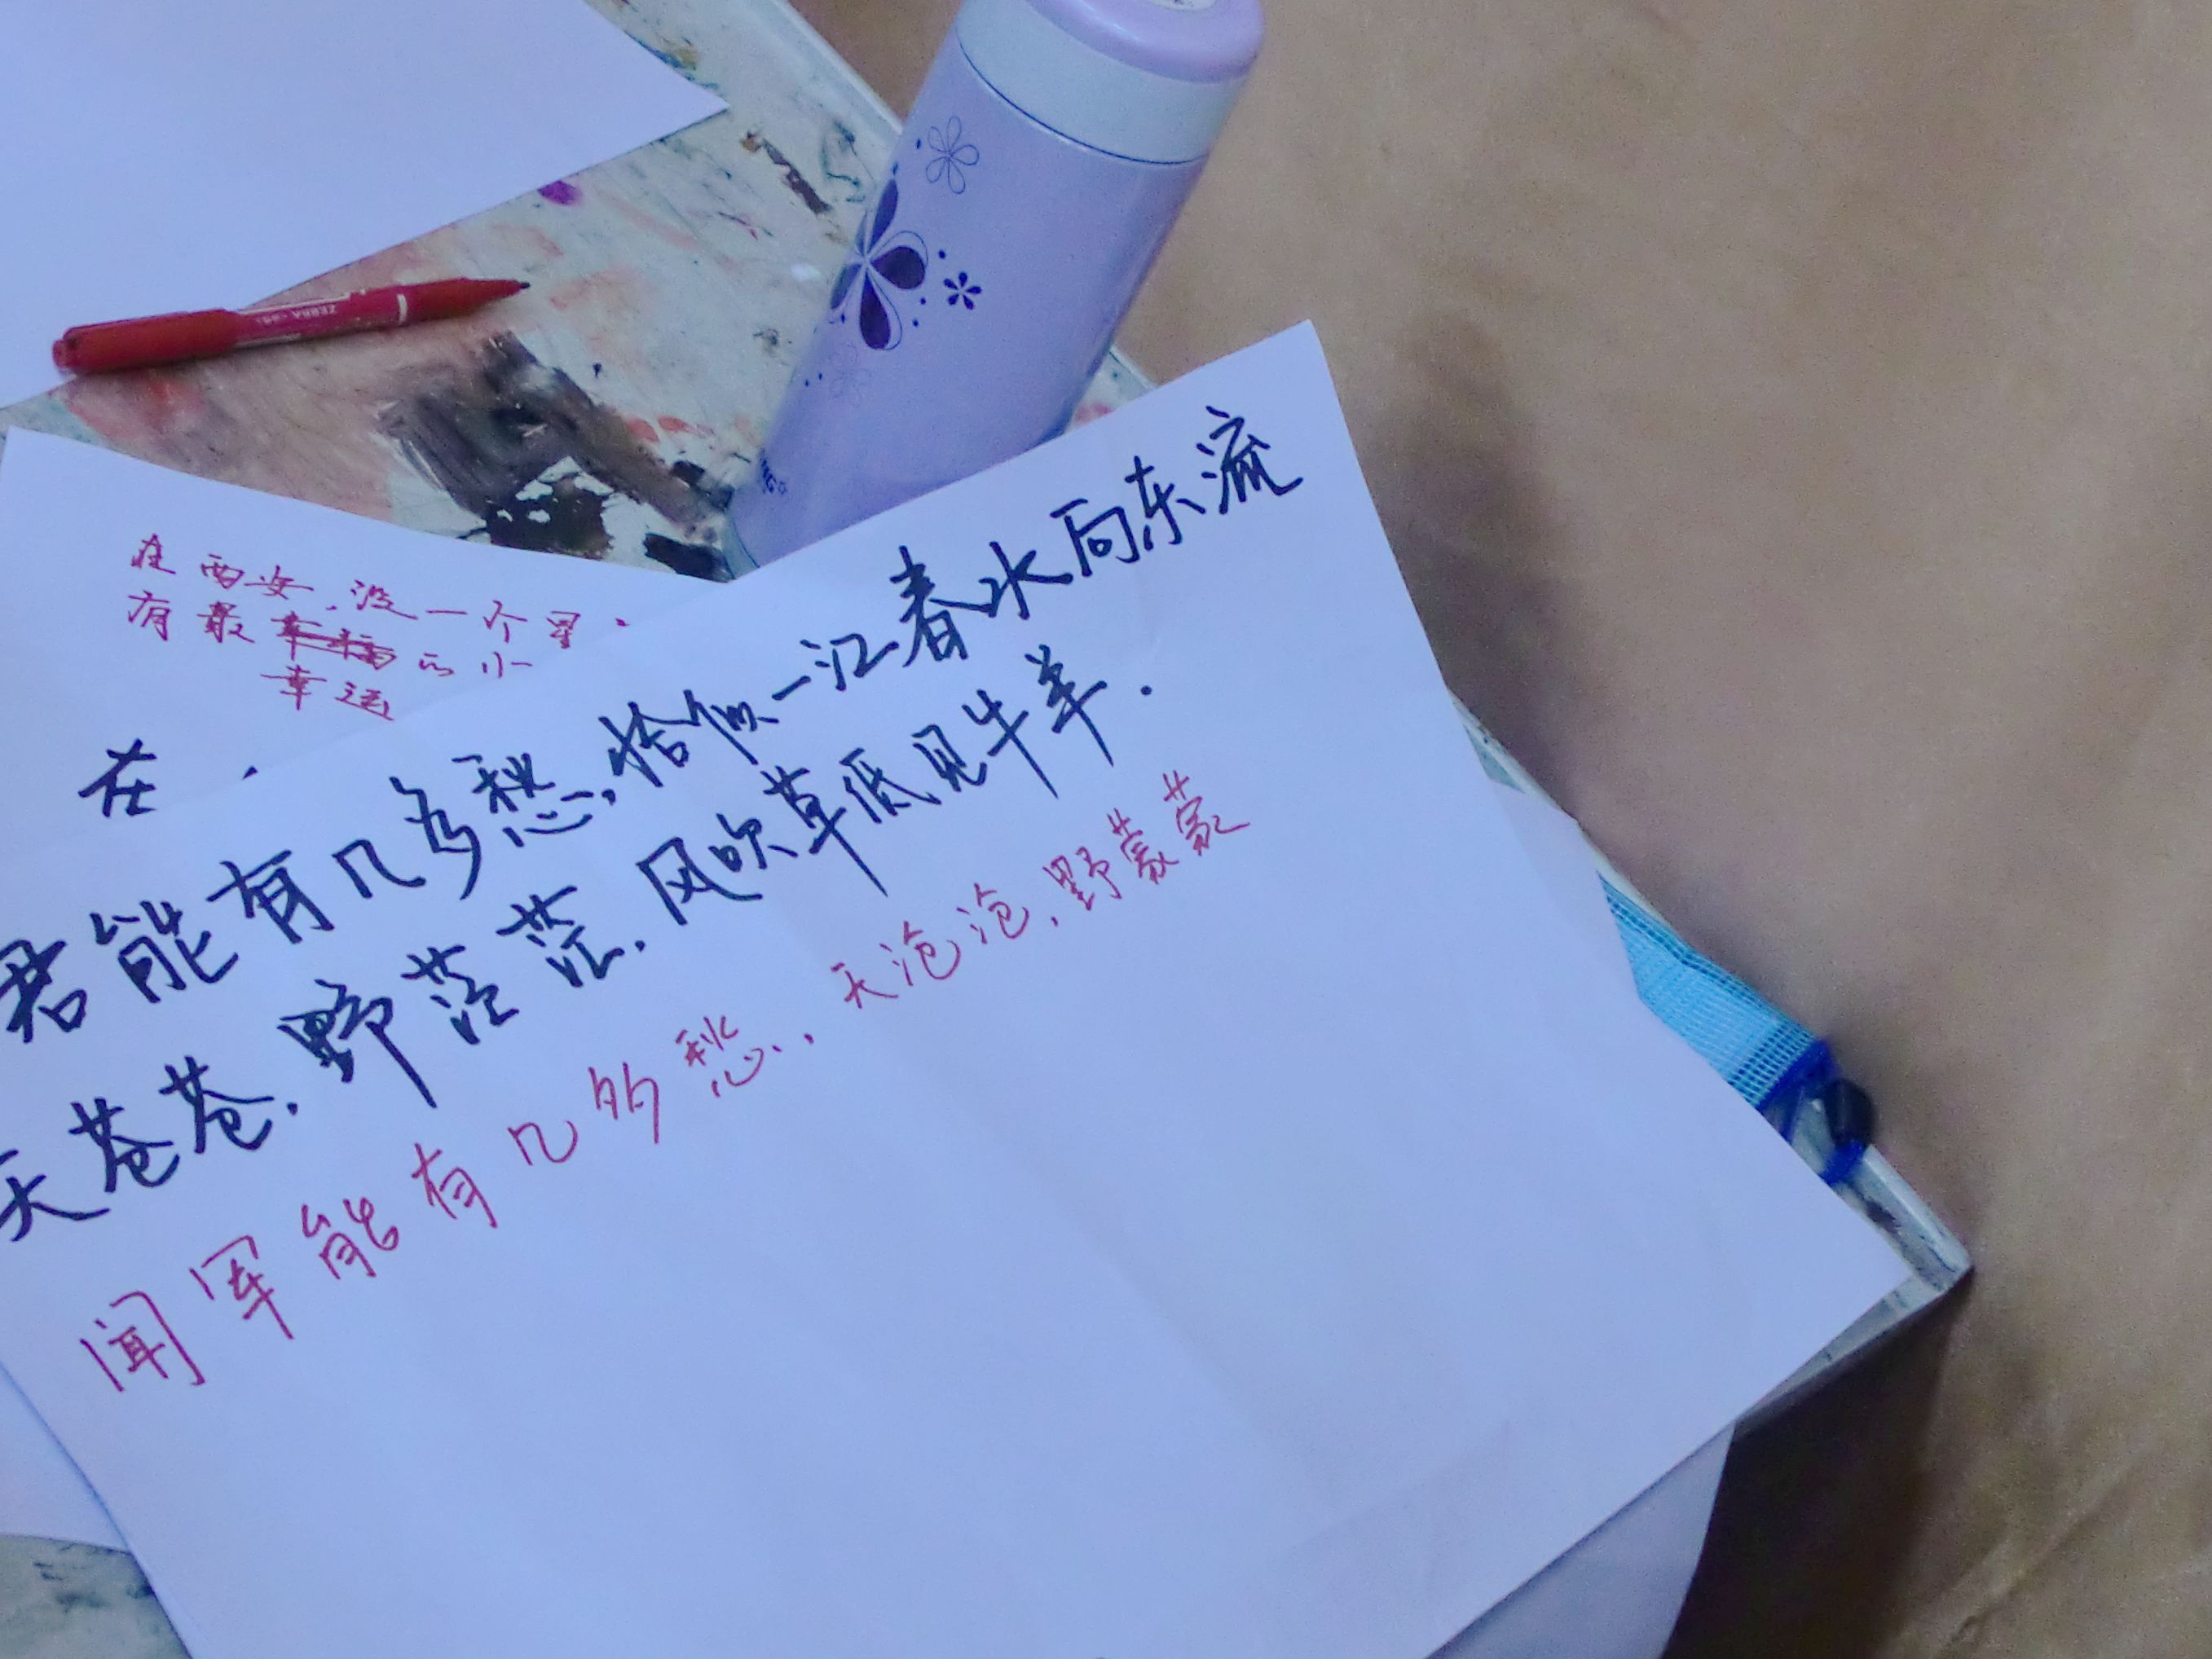 ZEBRA
在西安.没一个星
有最幸福的小
幸运
在
君能有几多愁,恰似一江春水向东流
天苍苍.野茫茫.风吹草低见牛羊.
闻军能有几的愁.,天沧沧.野蒙蒙